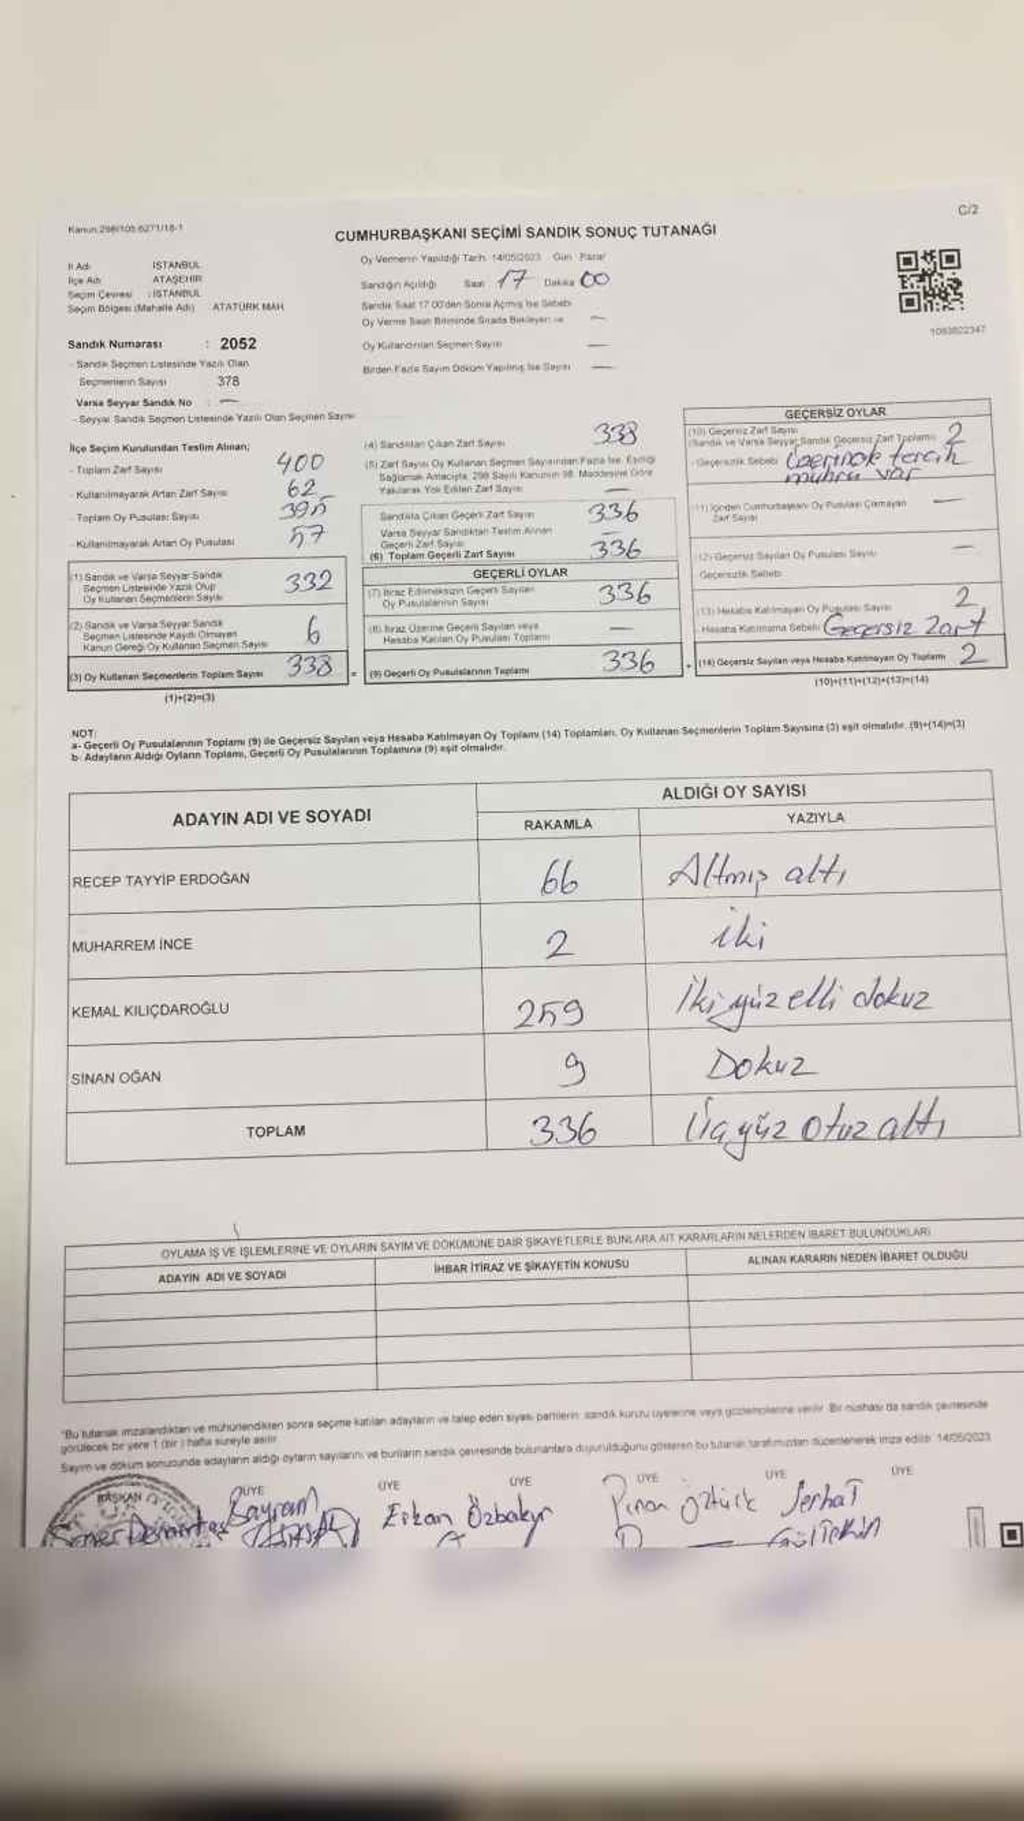 Kanun:298/105 6271/18-1
C/2
CUMHURBAŞKANI SEÇİMİ SANDIK SONUÇ TUTANAĞI
İl Adı İSTANBUL
İlçe Adı ATAŞEHİR
Seçim Çevresi : İSTANBUL
Seçim Bölgesi (Mahalle Adı) ATATÜRK MAH.
Oy Vermenin Yapıldığı Tarih 14/05/2023 Gün Pazar
Sandığın Açıldığı Saat 17 Dakika 00
Sandık Saat 17.00'den Sonra Açmış İse Sebebi
Oy Verme Saati Bitiminde Sırada Bekleyen ve —
Oy Kullandırılan Seçmen Sayısı —
Birden Fazla Sayım Döküm Yapılmış İse Sayısı —
1093822347
Sandık Numarası : 2052
- Sandık Seçmen Listesinde Yazılı Olan
Seçmenlerin Sayısı 378
Varsa Seyyar Sandık No : —
- Seyyar Sandık Seçmen Listesinde Yazılı Olan Seçmen Sayısı
İlçe Seçim Kurulundan Teslim Alınan;
- Toplam Zarf Sayısı 400
- Kullanılmayarak Artan Zarf Sayısı 62
- Toplam Oy Pusulası Sayısı 395
- Kullanılmayarak Artan Oy Pusulası 57
(1) Sandık ve Varsa Seyyar Sandık
Seçmen Listesinde Yazılı Olup
Oy Kullanan Seçmenlerin Sayısı 332
(2) Sandık ve Varsa Seyyar Sandık
Seçmen Listesinde Kaydı Olmayan
Kanun Gereği Oy Kullanan Seçmen Sayısı 6
(3) Oy Kullanan Seçmenlerin Toplam Sayısı 338 =
(1)+(2)=(3)
(4) Sandıktan Çıkan Zarf Sayısı 338
(5) Zarf Sayısı Oy Kullanan Seçmen Sayısından Fazla İse, Eşitliği
Sağlamak Amacıyla, 298 Sayılı Kanunun 98. Maddesine Göre
Yakılarak Yok Edilen Zarf Sayısı —
Sandıkta Çıkan Geçerli Zarf Sayısı 336
Varsa Seyyar Sandıktan Teslim Alınan
Geçerli Zarf Sayısı —
(6) Toplam Geçerli Zarf Sayısı 336
GEÇERLİ OYLAR
(7) İtiraz Edilmeksizin Geçerli Sayılan
Oy Pusulalarının Sayısı 336
(8) İtiraz Üzerine Geçerli Sayılan veya
Hesaba Katılan Oy Pusulası Toplamı —
(9) Geçerli Oy Pusulalarının Toplamı 336 +
GEÇERSİZ OYLAR
(10) Geçersiz Zarf Sayısı
(Sandık ve Varsa Seyyar Sandık Geçersiz Zarf Toplamı) 2
- Geçersizlik Sebebi Üzerinde tercih
mührü var
(11) İçinden Cumhurbaşkanı Oy Pusulası Çıkmayan
Zarf Sayısı —
(12) Geçersiz Sayılan Oy Pusulası Sayısı —
Geçersizlik Sebebi
(13) Hesaba Katılmayan Oy Pusulası Sayısı 2
- Hesaba Katılmama Sebebi Geçersiz Zarf
(14) Geçersiz Sayılan veya Hesaba Katılmayan Oy Toplamı 2
(10)+(11)+(12)+(13)=(14)
NOT:
a- Geçerli Oy Pusulalarının Toplamı (9) ile Geçersiz Sayılan veya Hesaba Katılmayan Oy Toplamı (14) Toplamları, Oy Kullanan Seçmenlerin Toplam Sayısına (3) eşit olmalıdır. (9)+(14)=(3)
b- Adayların Aldığı Oyların Toplamı, Geçerli Oy Pusulalarının Toplamına (9) eşit olmalıdır.
ADAYIN ADI VE SOYADI
ALDIĞI OY SAYISI
RAKAMLA YAZIYLA
RECEP TAYYİP ERDOĞAN 66 Altmış altı
MUHARREM İNCE 2 iki
KEMAL KILIÇDAROĞLU 259 İki yüz elli dokuz
SİNAN OĞAN 9 Dokuz
TOPLAM 336 Üç yüz otuz altı
OYLAMA İŞ VE İŞLEMLERİNE VE OYLARIN SAYIM VE DÖKÜMÜNE DAİR ŞİKAYETLERLE BUNLARA AİT KARARLARIN NELERDEN İBARET BULUNDUKLARI
ADAYIN ADI VE SOYADI İHBAR İTİRAZ VE ŞİKAYETİN KONUSU ALINAN KARARIN NEDEN İBARET OLDUĞU
"Bu tutanak imzalandıktan ve mühürlendikten sonra seçime katılan adayların ve talep eden siyasi partilerin sandık kurulu üyelerine veya gözlemcilerine verilir. Bir nüshası da sandık çevresinde
görülecek bir yere 1 (bir ) hafta süreyle asılır.
Sayım ve döküm sonucunda adayların aldığı oyların sayılarını ve bunların sandık çevresinde bulunanlara duyurulduğunu gösteren bu tutanak tarafımızdan düzenlenerek imza edildi. 14/05/2023
BAŞKAN ÜYE ÜYE ÜYE ÜYE ÜYE ÜYE
Bayram Erkan Özbakır Pınar Öztürk Serhat
Gültekin